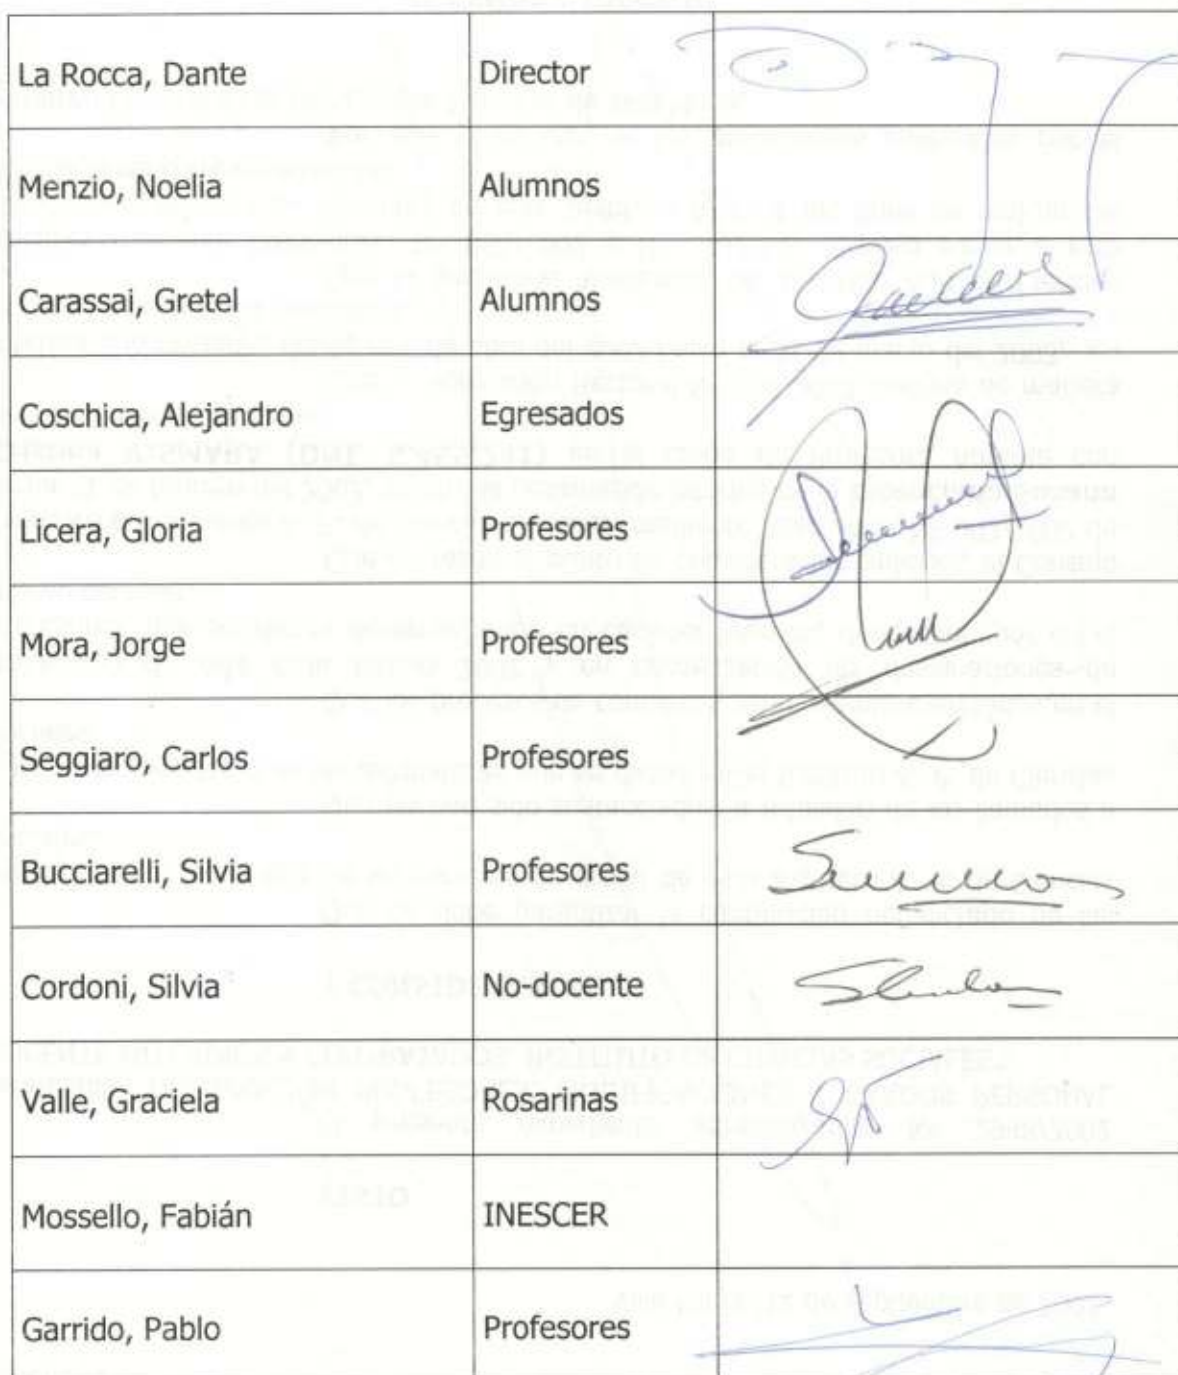 La Rocca, Dante Director
Menzio, Noelia Alumnos
Carassai, Gretel Alumnos
Coschica, Alejandro Egresados
Licera, Gloria Profesores
Mora, Jorge Profesores
Seggiaro, Carlos Profesores
Bucciarelli, Silvia Profesores
Cordoni, Silvia No-docente
Valle, Graciela Rosarinas
Mossello, Fabián INESCER
Garrido, Pablo Profesores